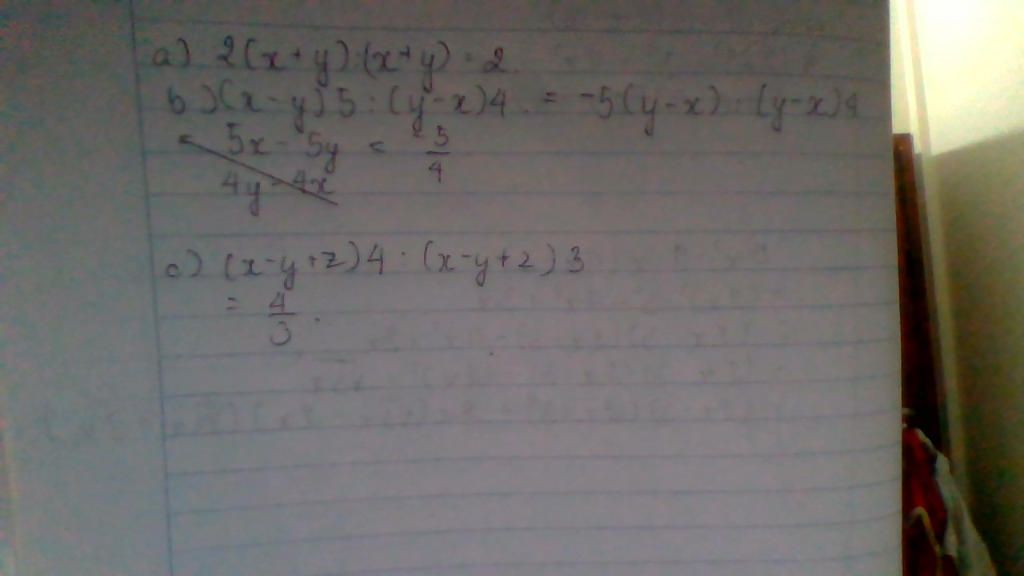 a) 2(x+y):(x+y) = 2.
b) (x-y)5 : (y-x)4 = -5(y-x) : (y-x)4
= 5x - 5y / 4y - 4x = -5/4
c) (x-y+z)4 : (x-y+z)3
= 4/3.